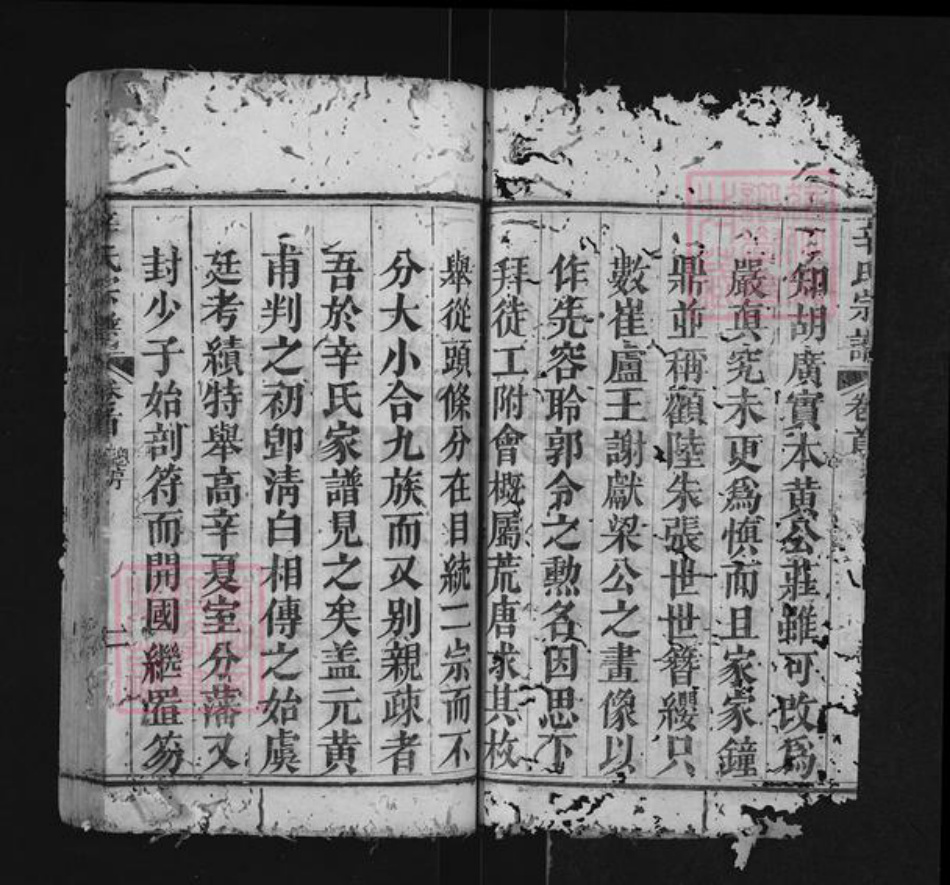 辛氏宗譜
卷首
知胡廣實本黃公莊雖可改爲
嚴項究未更爲愼而且家家鐘
鼎並稱顧陸朱張世世簪纓只
數崔盧王謝獻梁公之畫像以
作先容聆郭令之勲名因思下
拜徒工附會槪屬荒唐求其枚
舉從頭條分在目統二宗而不
分大小合九族而又别親疎者
吾於辛氏家譜見之矣盖元黃
甫判之初卽清白相傳之始虞
廷考績特舉高辛夏室分藩又
封少子始剖符而開國繼置笏
卷首
二